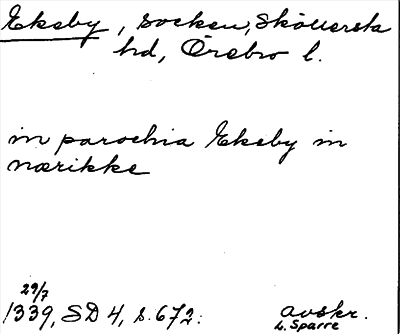 Ekeby, socken, Sköllersta
hd, Örebro l.
in parochia Ekeby in
nærikke
29/7
1339, SD 4, s. 672.
avskr.
L. Sparre